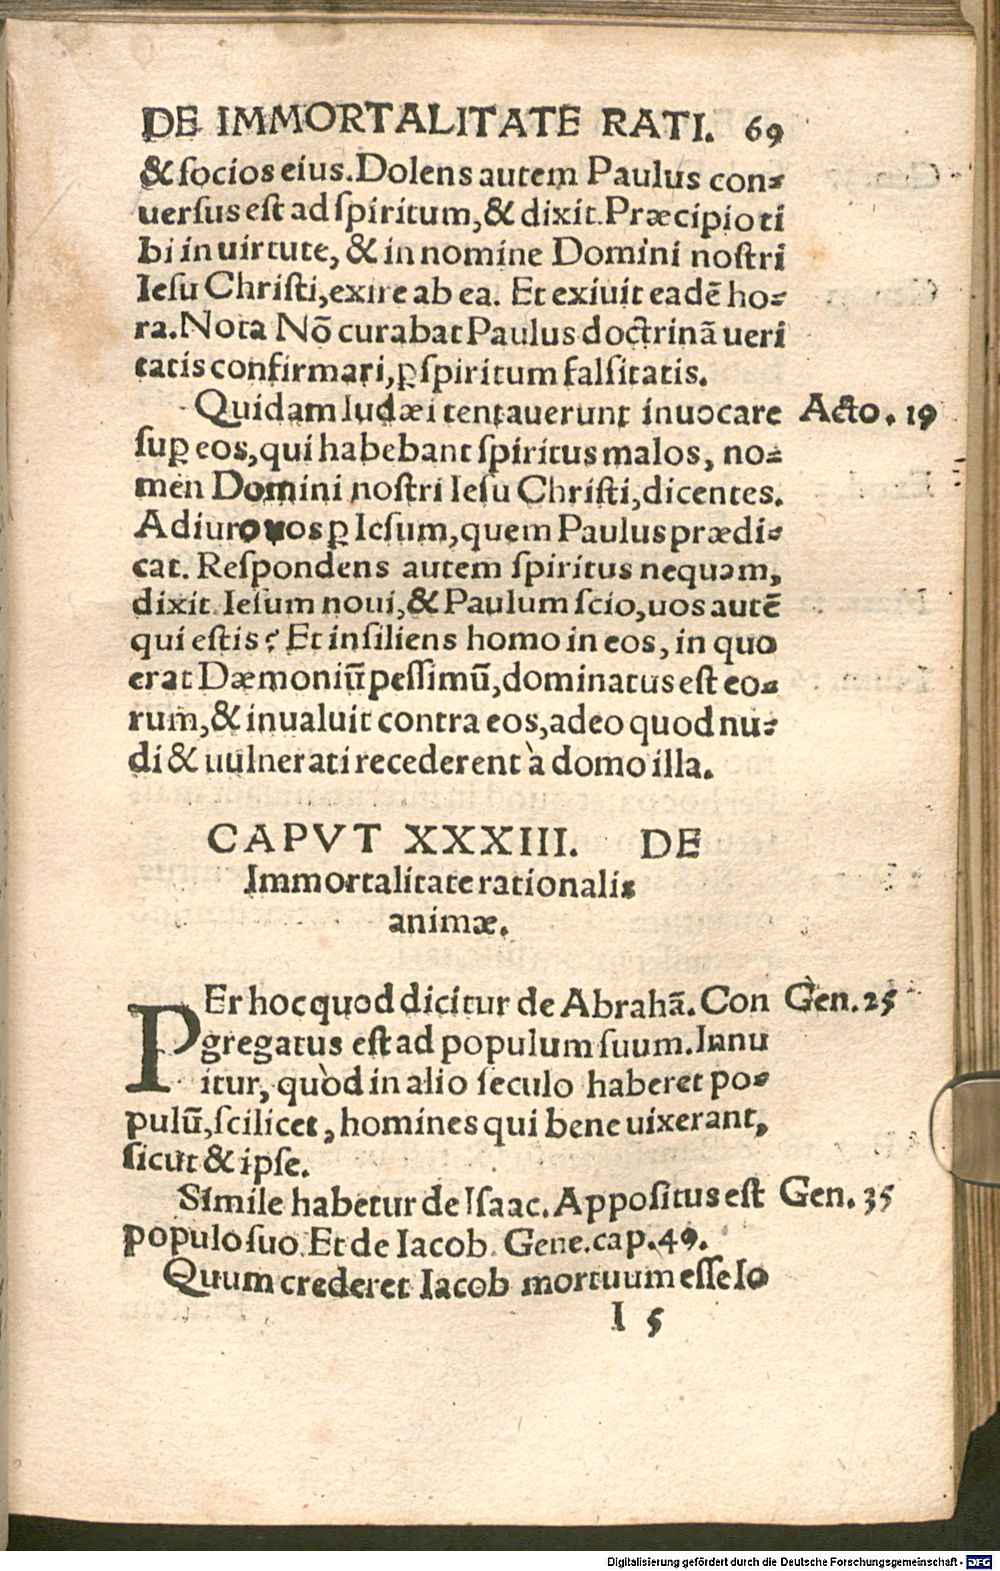 DE IMMORTALITATE RATI. 69
& socios eius. Dolens autem Paulus con⸗
uersus est ad spiritum, & dixit. Præcipio ti
bi in uirtute, & in nomine Domini nostri
Iesu Christi, exire ab ea. Et exiuit eadē ho⸗
ra. Nota Nō curabat Paulus doctrinā ueri
tatis confirmari, ꝑ spiritum falsitatis.
Quidam Iudæi tentauerunt inuocare Acto. 19
suꝑ eos, qui habebant spiritus malos, no⸗
men Domini nostri Iesu Christi, dicentes.
Adiuro uos ꝑ Iesum, quem Paulus prædi⸗
cat. Respondens autem spiritus nequam,
dixit. Iesum noui, & Paulum scio, uos autē
qui estis? Et insiliens homo in eos, in quo
erat Dæmoniū pessimū, dominatus est eo⸗
rum, & inualuit contra eos, adeo quod nu⸗
di & uulnerati recederent à domo illa.
CAPVT XXXIII. DE
Immortalitate rationalis
animæ.
PEr hoc quod dicitur de Abrahā. Con Gen. 25
gregatus est ad populum suum. Innu
itur, quòd in alio seculo haberet po⸗
pulū, scilicet, homines qui bene uixerant,
sicut & ipse.
Simile habetur de Isaac. Appositus est Gen. 35
populo suo. Et de Iacob. Gene. cap. 49.
Quum crederet Iacob mortuum esse Io
I 5
Digitalisierung gefördert durch die Deutsche Forschungsgemeinschaft - DFG